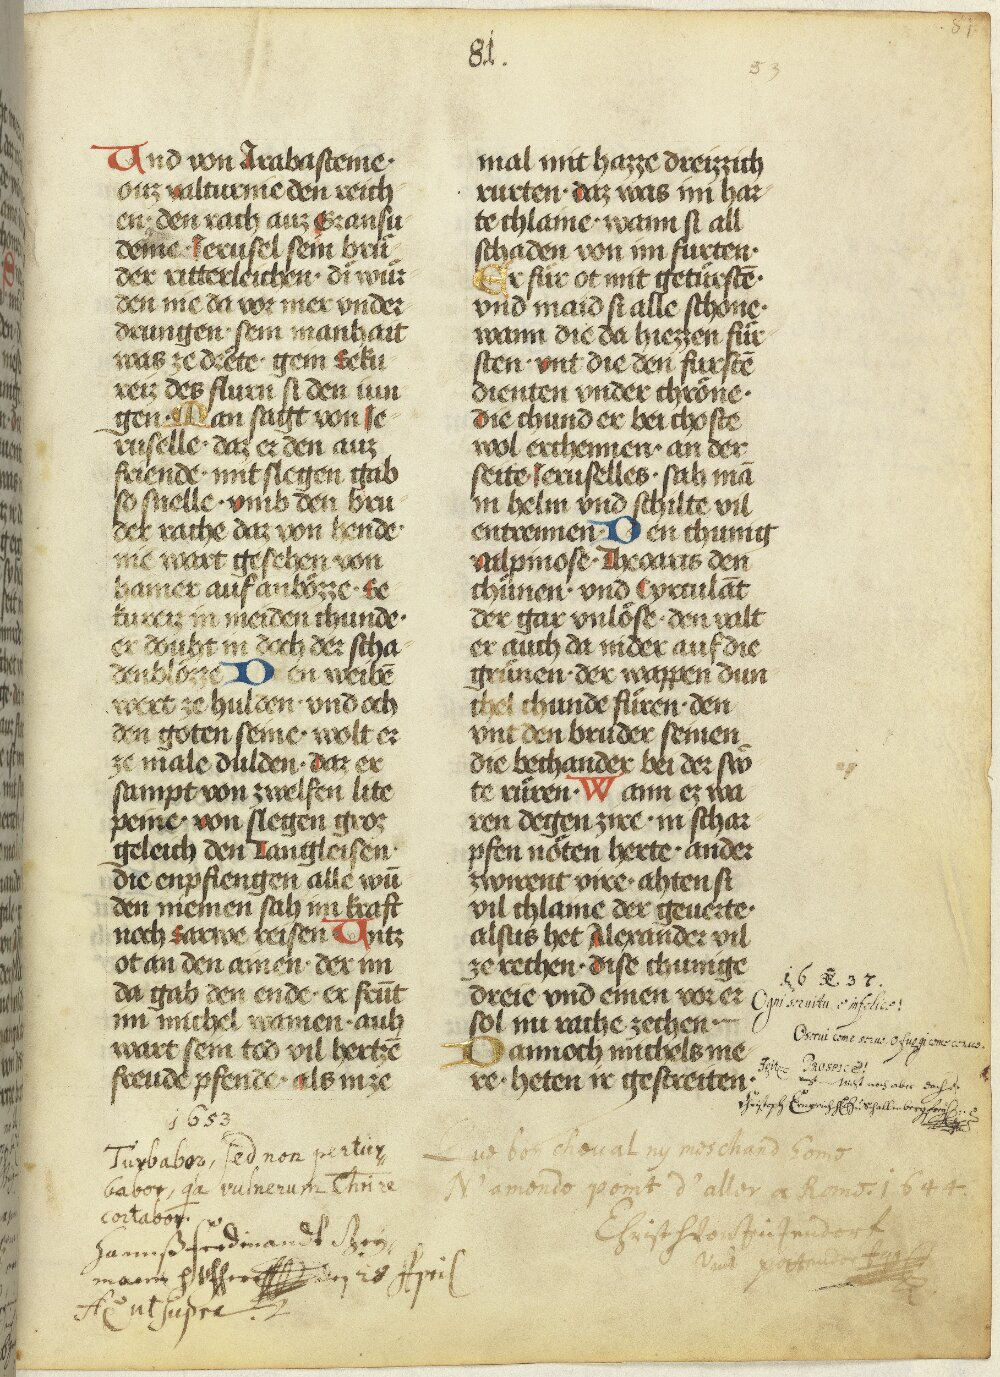 81
81.
53
Und von Arabasteine·
ouz valturnie den reich
en· den rach auz Gransu
deine· Ierusel sein brů
der ritterleichen· di wůr
den nie da vor mer vnder
drungen· sein manhait
was ze drete· gein Seku
reiz des flurn si den iun
gen· Man sagt von Ie
ruselle· daz er den auz
friende· mit slegen gab
so snelle· vmb den bru
der rache daz von hende·
nie wart gesehen von
hamer auf anbözze· Se
kureiz in meiden chunde·
er doubt in doch der scha
den blözze Den weiben̄
wert ze hulden· vnd och
den goten seine· wolt er
ze male dulden· daz er
sampt von zwelfen lite
peine· von slegen groz
geleich den Tangleisen·
die enpfiengen alle wū
den niemen sah im kraft
noch Sarwe reisen Untz
ot an den amen· der im
da gab den ende· er frůt
im michel wamen· auh
wart sein tod vil hertzē
freude pfende· als in ze
mal mit hazze dreizzich
rurten· daz was im har
te chlaine· wann si all
schaden von im furten·
Er für ot mit getürstē·
vnd maid si alle schone·
wann die da hiezzen für
sten· vnt die den furstē
dienten vnder chröne·
die chund er bei choste
wol erchennen· an der
seite Ieruselles· sah mā
in helm vnd schilte vil
entrennen· Den chunig
Alpinose· Theoaris den
chünen· vnd Cyrculāt
der gar vnlöse· den valt
er auch da nider auf die
grünen· der wappen dun
chel chunde füren· den
vnt den bruder seinen
die bechander bei der swo
te rüren· Wann er wa
ren degen zire· in schar
pfen nöten herte· ander
zwirent vire· ahten si
vil chlaine der geuerte·
alsus het Alexander vil
ze rechen· dise chunige
dreie vnd einen vor er
sol nu rache zechen·
Dannoch michels me
re· heten ir gestreiten·
16 37.
Ogni seruitu e infelice!
1653
Turbabor, sed non pertur,
babor, qa vulnerum Christe
cortabor.
Hannß Ferdinandt
den 28 April
Aō ut supra
Que bon cheual ny meschand home
N'amende point d'aller a Rome. 1644